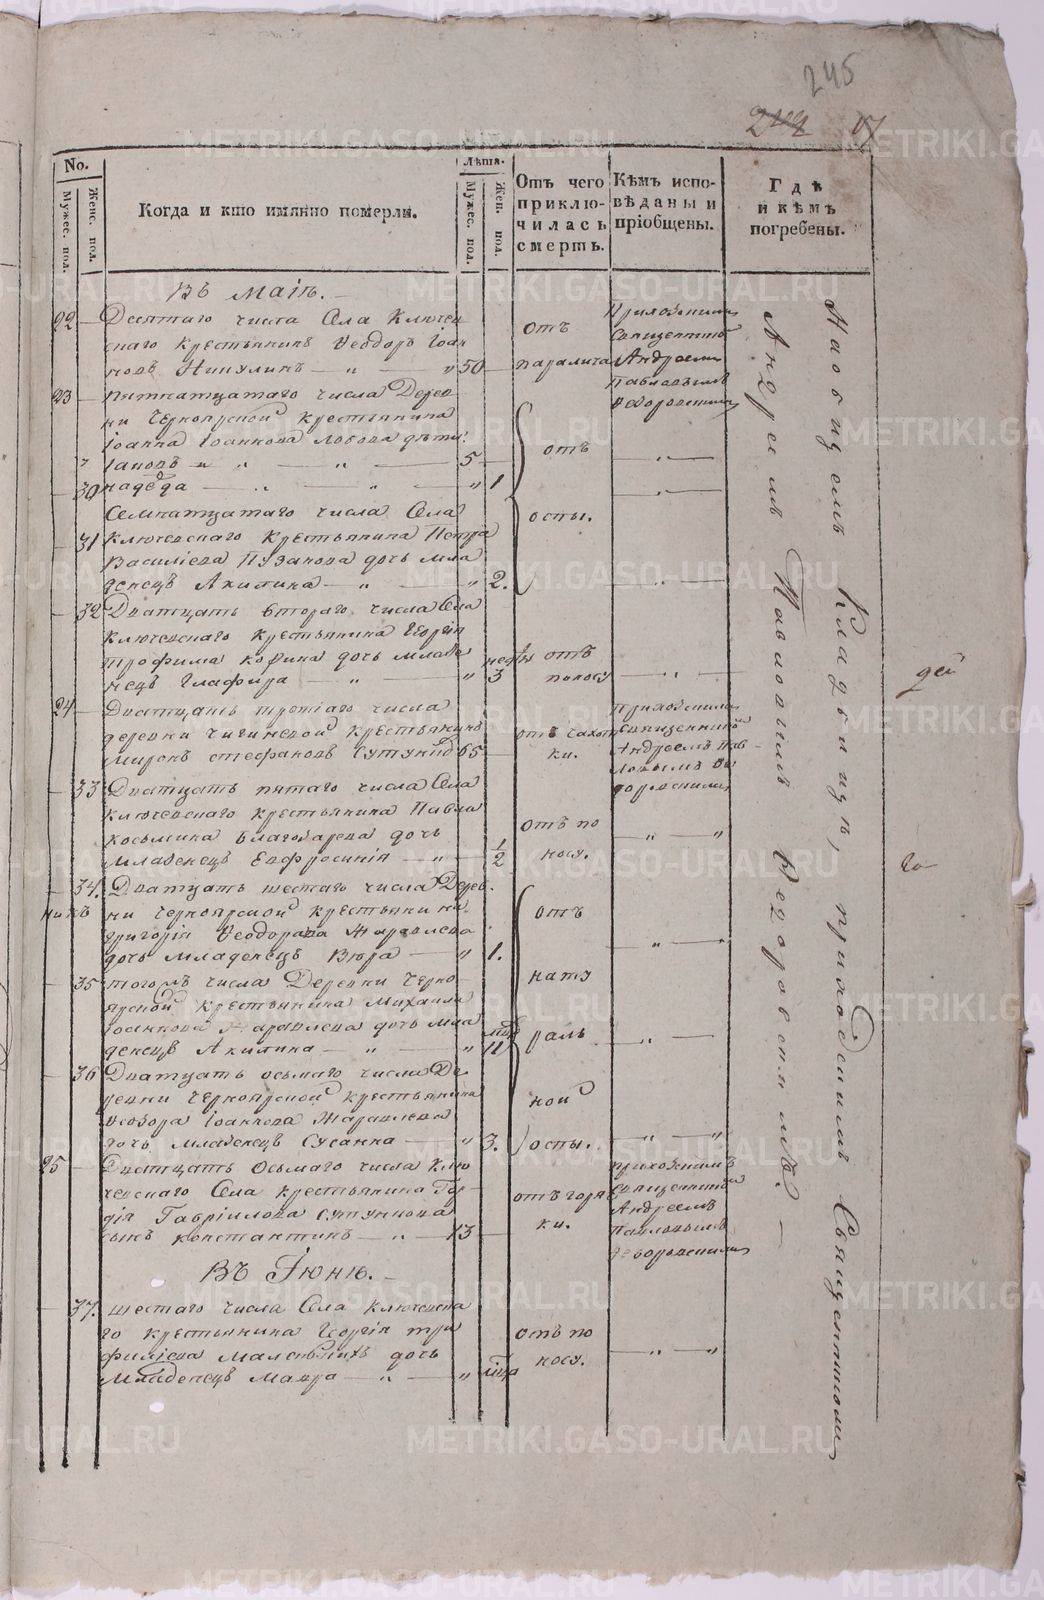 245
No.
Мужес. пол.
Женс. пол.
Когда и кто имянно померли.
Лѣта.
Мужес. пол.
Жен. пол.
Отъ чего
приклю-
чилась
смерть.
Кѣмъ испо-
вѣданы и
пріобщены.
Гдѣ
и кѣмъ
погребены.
Въ Маіѣ.
22 Десятаго числа Села Ключев
скаго крестьянинъ Ѳеодоръ Іоан
новъ Никулинъ — " — " 50
отъ
паралича
Приходскимъ
Священникомъ
Андреемъ
Павловымъ
Ѳедоровскимъ
23 Пятнатцатаго числа Дерев
ни Черноярской крестьянина
Іоанна Іоаннова Лобова дѣти:
Іаковъ — " — " — 5
30 Надежда — " — " — " 1
отъ
оспы.
Семнатцатаго числа Села
31 Ключевскаго крестьянина Петра
Василіева Пузанова дочь мла
денецъ Акилина — " — " 2.
32 Дватцать втораго числа Села
Ключевскаго крестьянина Георгія
Трофима дочь младе
нецъ Глафира — " — " 3
отъ
поносу
24 Дватцать третіаго числа
деревни крестьянинъ
Миронъ Стефановъ 65
отъ сахот
ки.
Приходскимъ
Священникомъ
Андреемъ Пав
ловымъ Ѳе
доровскимъ
33 Дватцать пятаго числа Села
Ключевскаго крестьянина Павла
Косьмина дочь
младенецъ Евфросинія — " — 1/2
отъ по
носу.
34. Дватцать шестаго числа Дерев
ни Черноярской крестьянина
Григорія Ѳеодорова Жаравлева
дочь младенецъ Вѣра — " 1.
отъ
нату
раль
ной
оспы.
35 тогожъ числа Деревни Черно
ярской крестьянина Михаила
Іоаннова Жаравлева дочь мла
денецъ Акилина — " — " 11
36 Дватцать осьмаго числа Де
ревни Черноярской крестьянина
Ѳеодора Іоаннова Жаравлева
дочь младенецъ Сусанна — " 3.
25 Дватцать осьмаго числа Клю
чевскаго Села крестьянина Гор
дія Гавріилова Сутункова
сынъ Константинъ — " — 13
отъ горя
ки.
приходскимъ
Священникомъ
Андреемъ
Павловымъ
Ѳедоровскимъ
Въ Іюнѣ.
37. шестаго числа Села Ключевска
го крестьянина Георгія Три
филіева дочь
Младенецъ Мавра — " — "
отъ по
носу.
На общемъ Кладбищѣ, приходскимъ Священникомъ
Андреемъ Павловымъ Ѳедоровскимъ.
METRIKI.GASO-URAL.RU